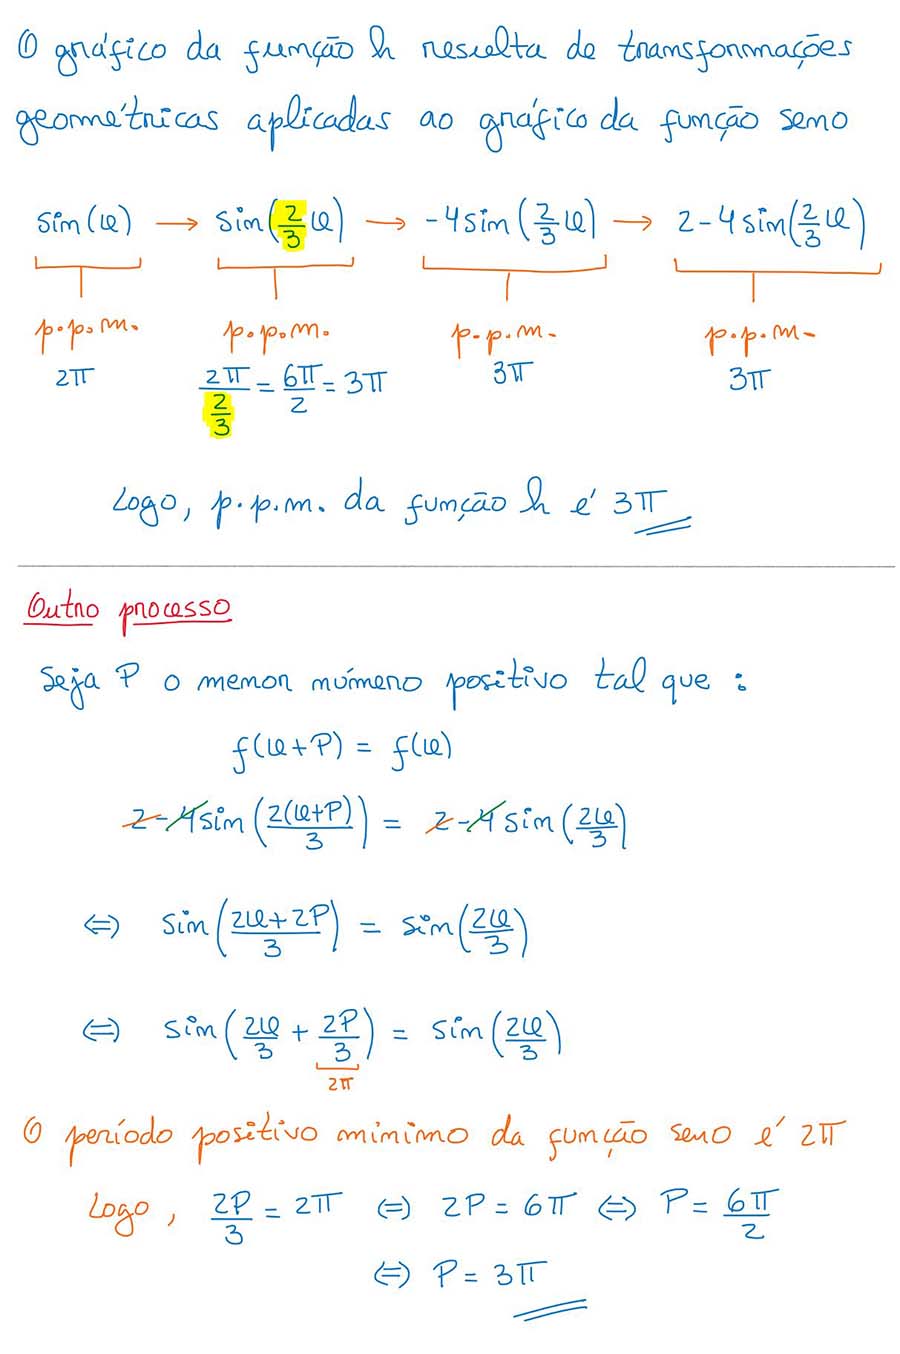 O gráfico da função h resulta de transformações
geométricas aplicadas ao gráfico da função seno
sin(x) → sin(2/3 x) → -4sin(2/3 x) → 2-4sin(2/3 x)
p.p.m. p.p.m. p.p.m. p.p.m.
2π 2π/(2/3) = 6π/2 = 3π 3π 3π
Logo, p.p.m. da função h é 3π
Outro processo
Seja P o menor número positivo tal que:
f(x+P) = f(x)
2-4sin(2(x+P)/3) = 2-4sin(2x/3)
⇔ sin((2x+2P)/3) = sin(2x/3)
⇔ sin(2x/3 + 2P/3) = sin(2x/3)
2π
O período positivo mínimo da função seno é 2π
Logo, 2P/3 = 2π ⇔ 2P = 6π ⇔ P = 6π/2
⇔ P = 3π